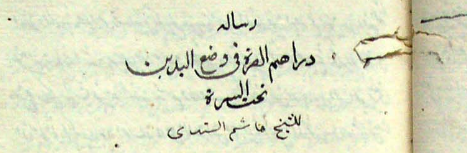 رساله
دراهم الصرة في وضع اليدين
تحت السرة
للشيخ هاشم السندي